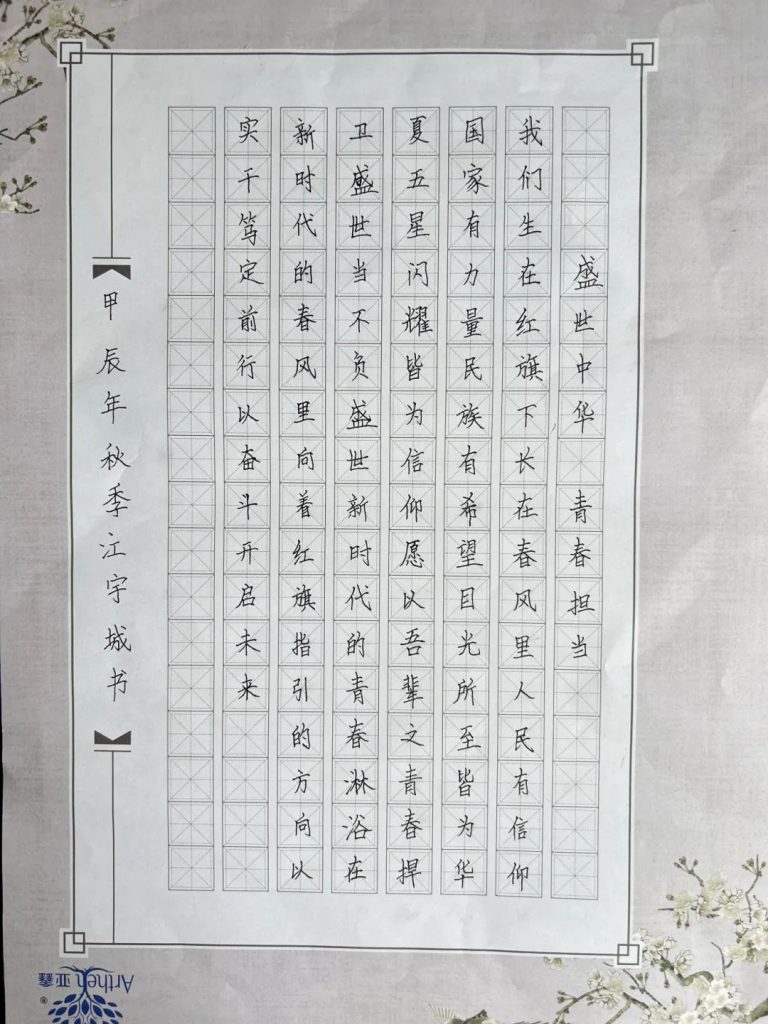 盛世中华 青春担当
我们生在红旗下长在春风里人民有信仰
国家有力量民族有希望目光所至皆为华
夏五星闪耀皆为信仰愿以吾辈之青春捍
卫盛世当不负盛世新时代的青春淋浴在
新时代的春风里向着红旗指引的方向以
实干笃定前行以奋斗开启未来
甲辰年秋季江宇城书
Arthen 亚鑫
®